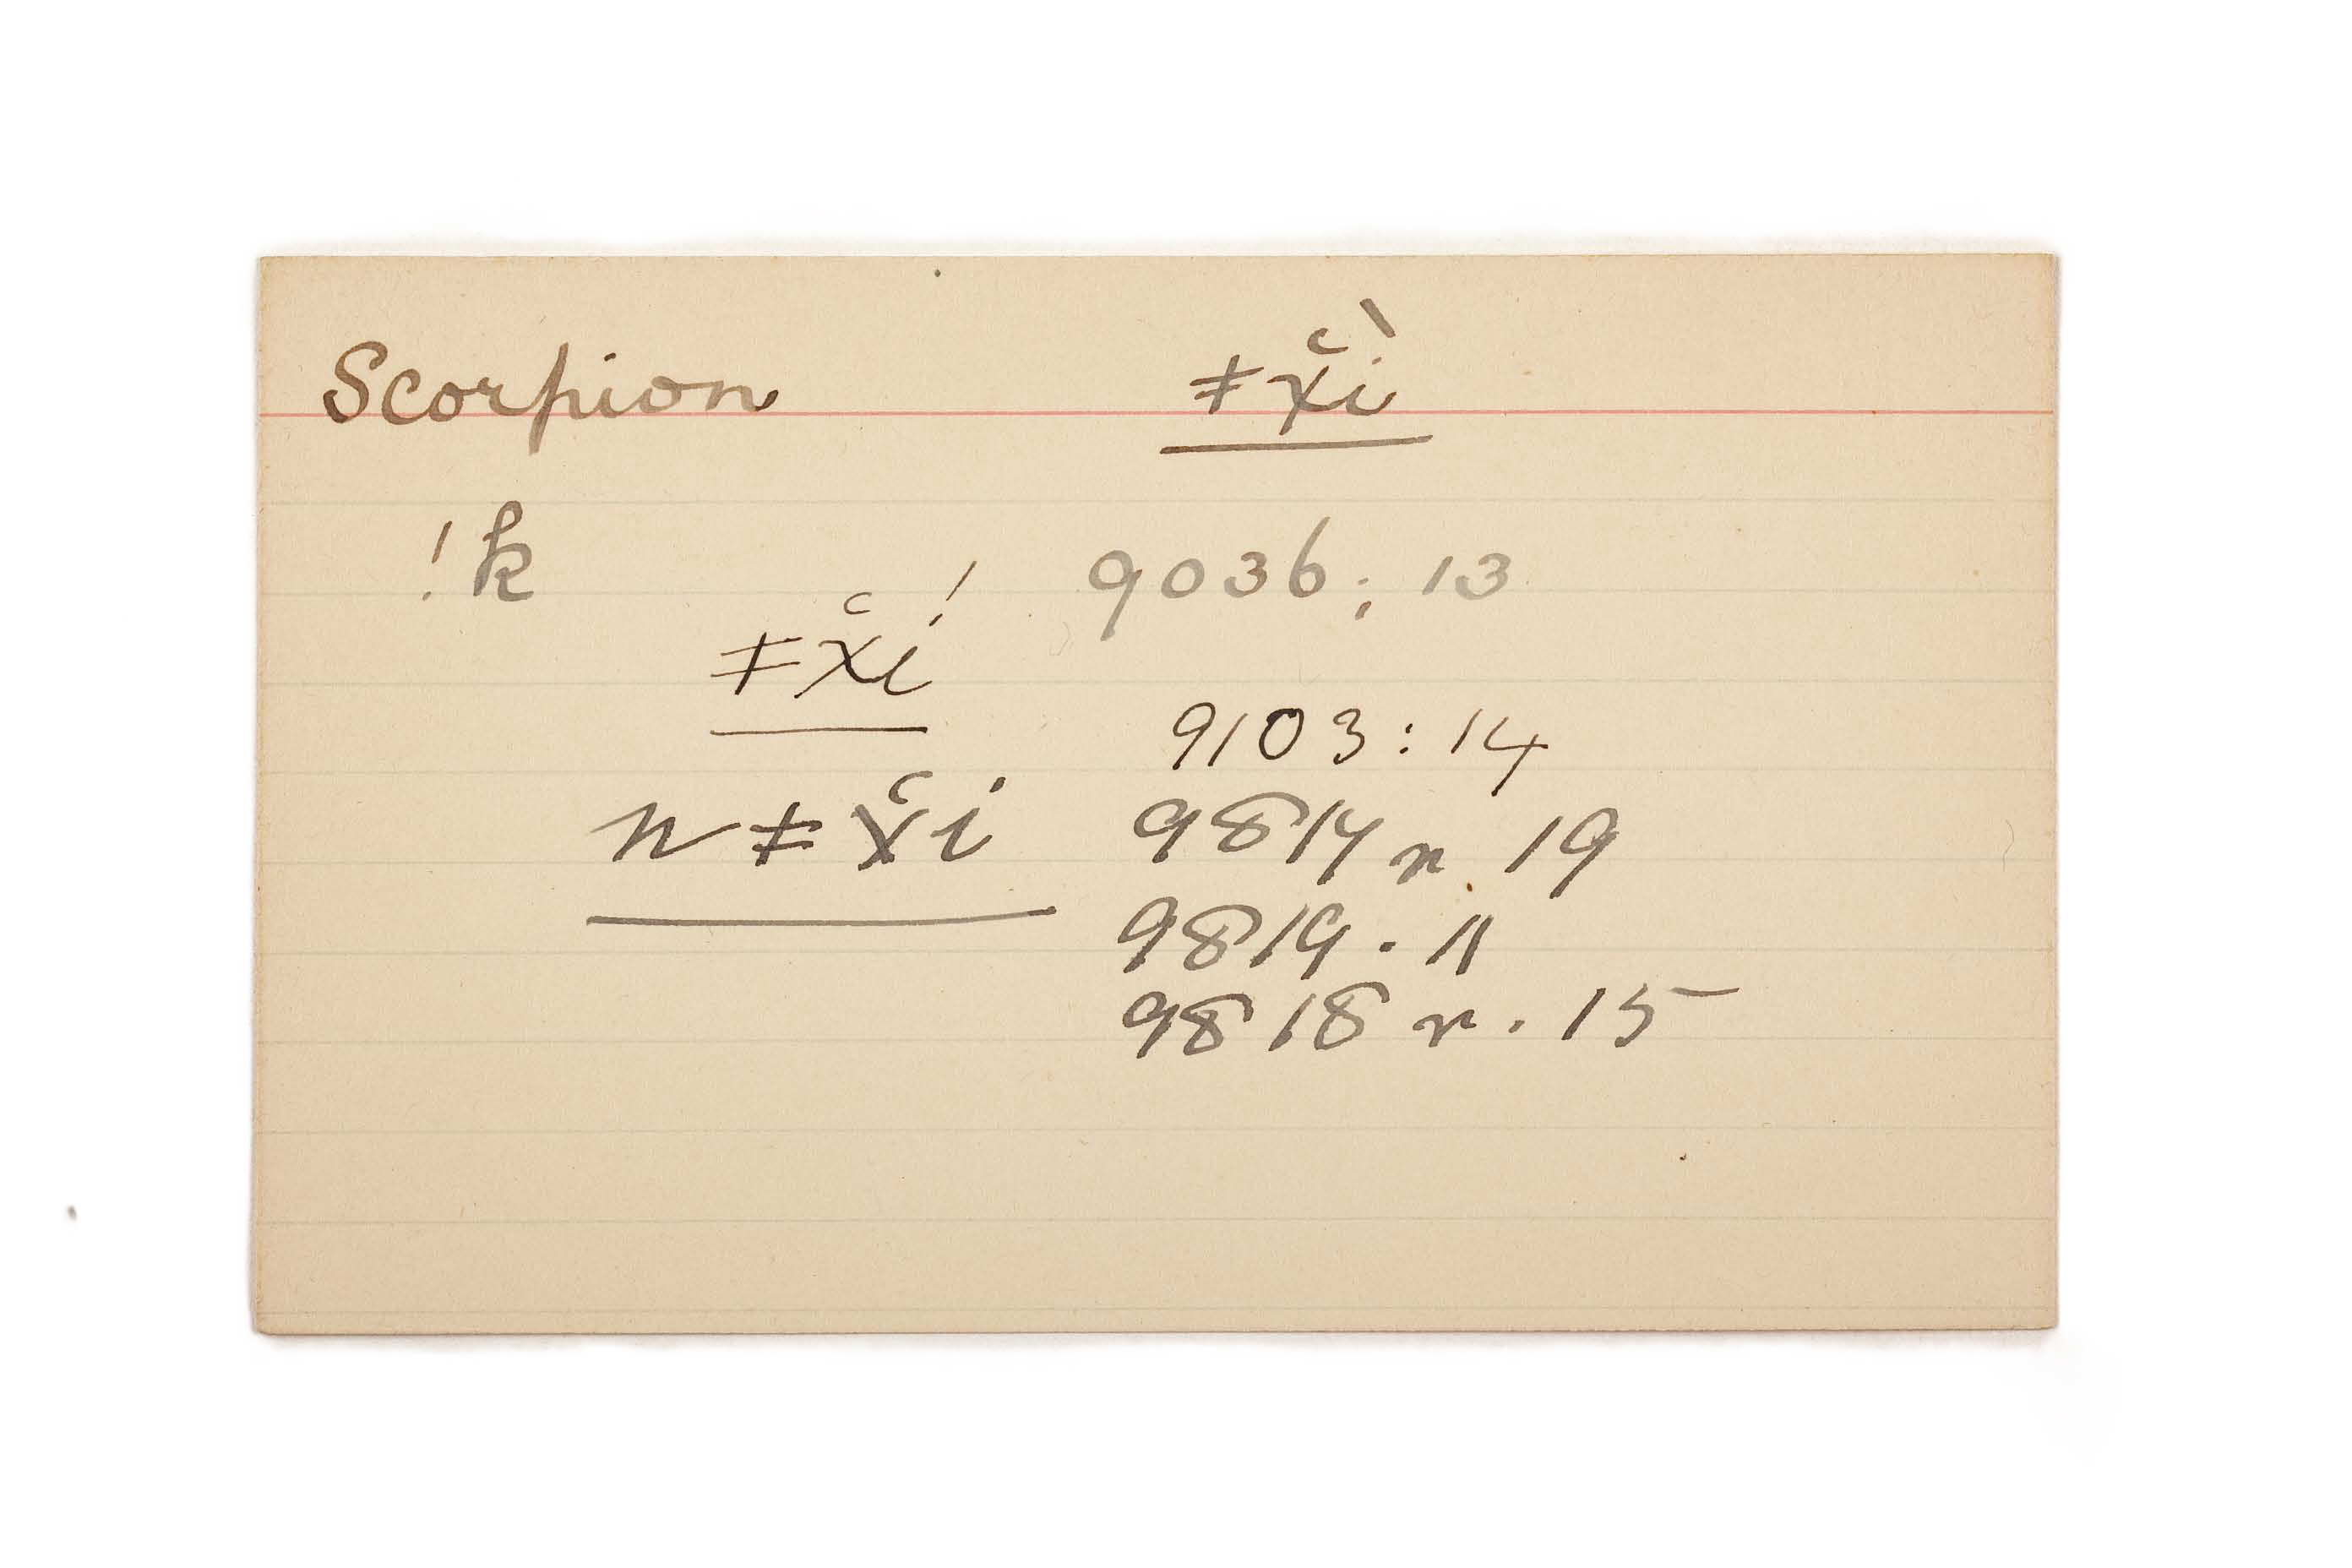 Scorpion ǂx̔ì
!k 9036; 13
ǂx̔í
9103: 14
n ǂx̔i 9814 r 19
9819. 11
9818 r. 15